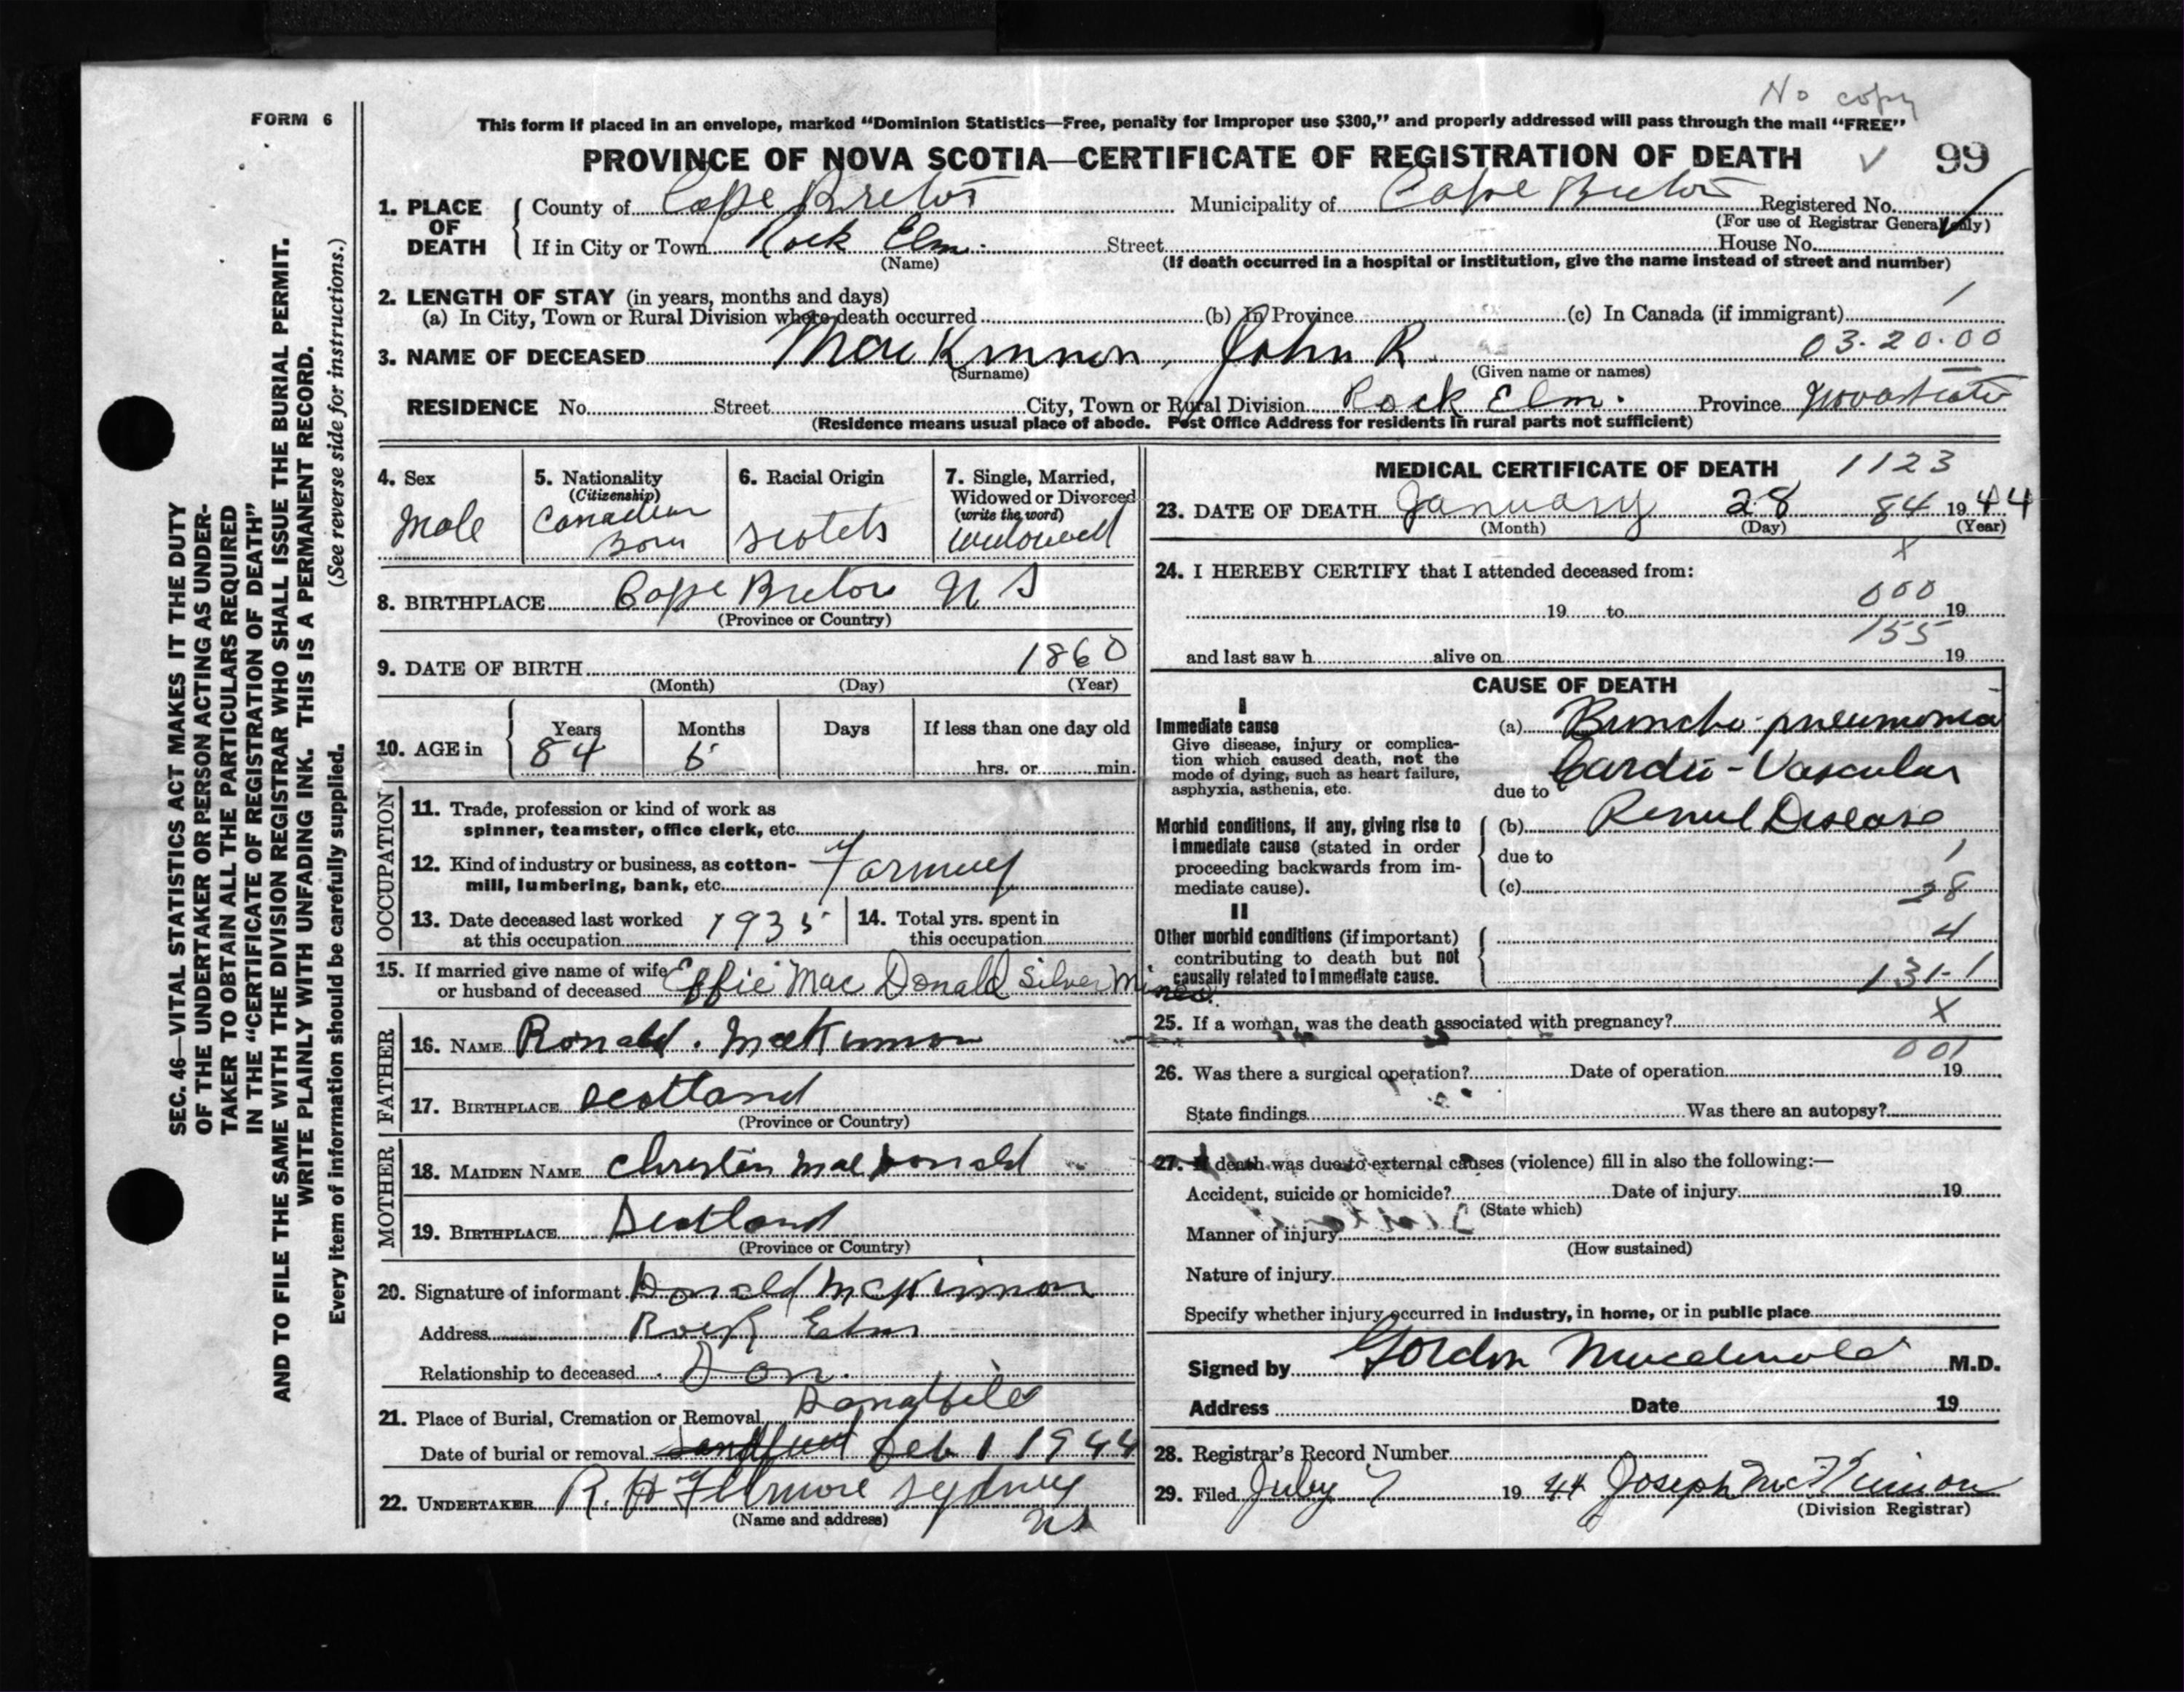 No copy
FORM 6
This form if placed in an envelope, marked “Dominion Statistics—Free, penalty for improper use $300,” and properly addressed will pass through the mail “FREE”
PROVINCE OF NOVA SCOTIA—CERTIFICATE OF REGISTRATION OF DEATH
99
1. PLACE OF DEATH
County of Cape Breton Municipality of Cape Breton Registered No.
(For use of Registrar General only)
If in City or Town Rock Elm. Street House No.
(Name)
(If death occurred in a hospital or institution, give the name instead of street and number)
2. LENGTH OF STAY (in years, months and days)
(a) In City, Town or Rural Division where death occurred (b) In Province (c) In Canada (if immigrant)
3. NAME OF DECEASED MacKinnon, John R. 03.20.00
(Surname) (Given name or names)
RESIDENCE No. Street City, Town or Rural Division Rock Elm. Province Nova Scotia
(Residence means usual place of abode. Post Office Address for residents in rural parts not sufficient)
4. Sex
Male
5. Nationality
(Citizenship)
Canadian
Born
6. Racial Origin
Scotch
7. Single, Married,
Widowed or Divorced
(write the word)
Widowed
8. BIRTHPLACE Cape Breton N S
(Province or Country)
9. DATE OF BIRTH 1860
(Month) (Day) (Year)
10. AGE in
Years Months Days If less than one day old
84 6 hrs. or min.
OCCUPATION
11. Trade, profession or kind of work as
spinner, teamster, office clerk, etc.
12. Kind of industry or business, as cotton-
mill, lumbering, bank, etc. Farming
13. Date deceased last worked
at this occupation 1935
14. Total yrs. spent in
this occupation
15. If married give name of wife
or husband of deceased Effie Mac Donald Silver Mines.
FATHER
16. NAME Ronald. MacKinnon
17. BIRTHPLACE Scotland
(Province or Country)
MOTHER
18. MAIDEN NAME Christin MacDonald
19. BIRTHPLACE Scotland
(Province or Country)
20. Signature of informant Donald McKinnon
Address Rock Elm
Relationship to deceased Son.
21. Place of Burial, Cremation or Removal
Date of burial or removal Feb 1 1944
22. UNDERTAKER R. H Fillmore Sydney
NS
(Name and address)
MEDICAL CERTIFICATE OF DEATH 1123
23. DATE OF DEATH January 28 84 1944
(Month) (Day) (Year)
X
24. I HEREBY CERTIFY that I attended deceased from:
000
19 to 19
155
and last saw h alive on 19
CAUSE OF DEATH
I
Immediate cause
Give disease, injury or complica-
tion which caused death, not the
mode of dying, such as heart failure,
asphyxia, asthenia, etc.
(a) Broncho-pneumonia
due to Cardio-Vascular
Morbid conditions, if any, giving rise to
immediate cause (stated in order
proceeding backwards from im-
mediate cause).
(b) Renal Disease
due to 1
(c) 28
II
Other morbid conditions (if important)
contributing to death but not
causally related to immediate cause.
4
131-1
25. If a woman, was the death associated with pregnancy? X
001
26. Was there a surgical operation? Date of operation 19
State findings Was there an autopsy?
27. If death was due to external causes (violence) fill in also the following:—
Accident, suicide or homicide? Date of injury 19
(State which)
Manner of injury
(How sustained)
Nature of injury
Specify whether injury occurred in industry, in home, or in public place
Signed by Gordon Macdonald M.D.
Address Date 19
28. Registrar's Record Number
29. Filed July 7 1944 Joseph McKinnon
(Division Registrar)
SEC. 46—VITAL STATISTICS ACT MAKES IT THE DUTY
OF THE UNDERTAKER OR PERSON ACTING AS UNDER-
TAKER TO OBTAIN ALL THE PARTICULARS REQUIRED
IN THE “CERTIFICATE OF REGISTRATION OF DEATH”
AND TO FILE THE SAME WITH THE DIVISION REGISTRAR WHO SHALL ISSUE THE BURIAL PERMIT.
WRITE PLAINLY WITH UNFADING INK. THIS IS A PERMANENT RECORD.
Every item of information should be carefully supplied. (See reverse side for instructions.)